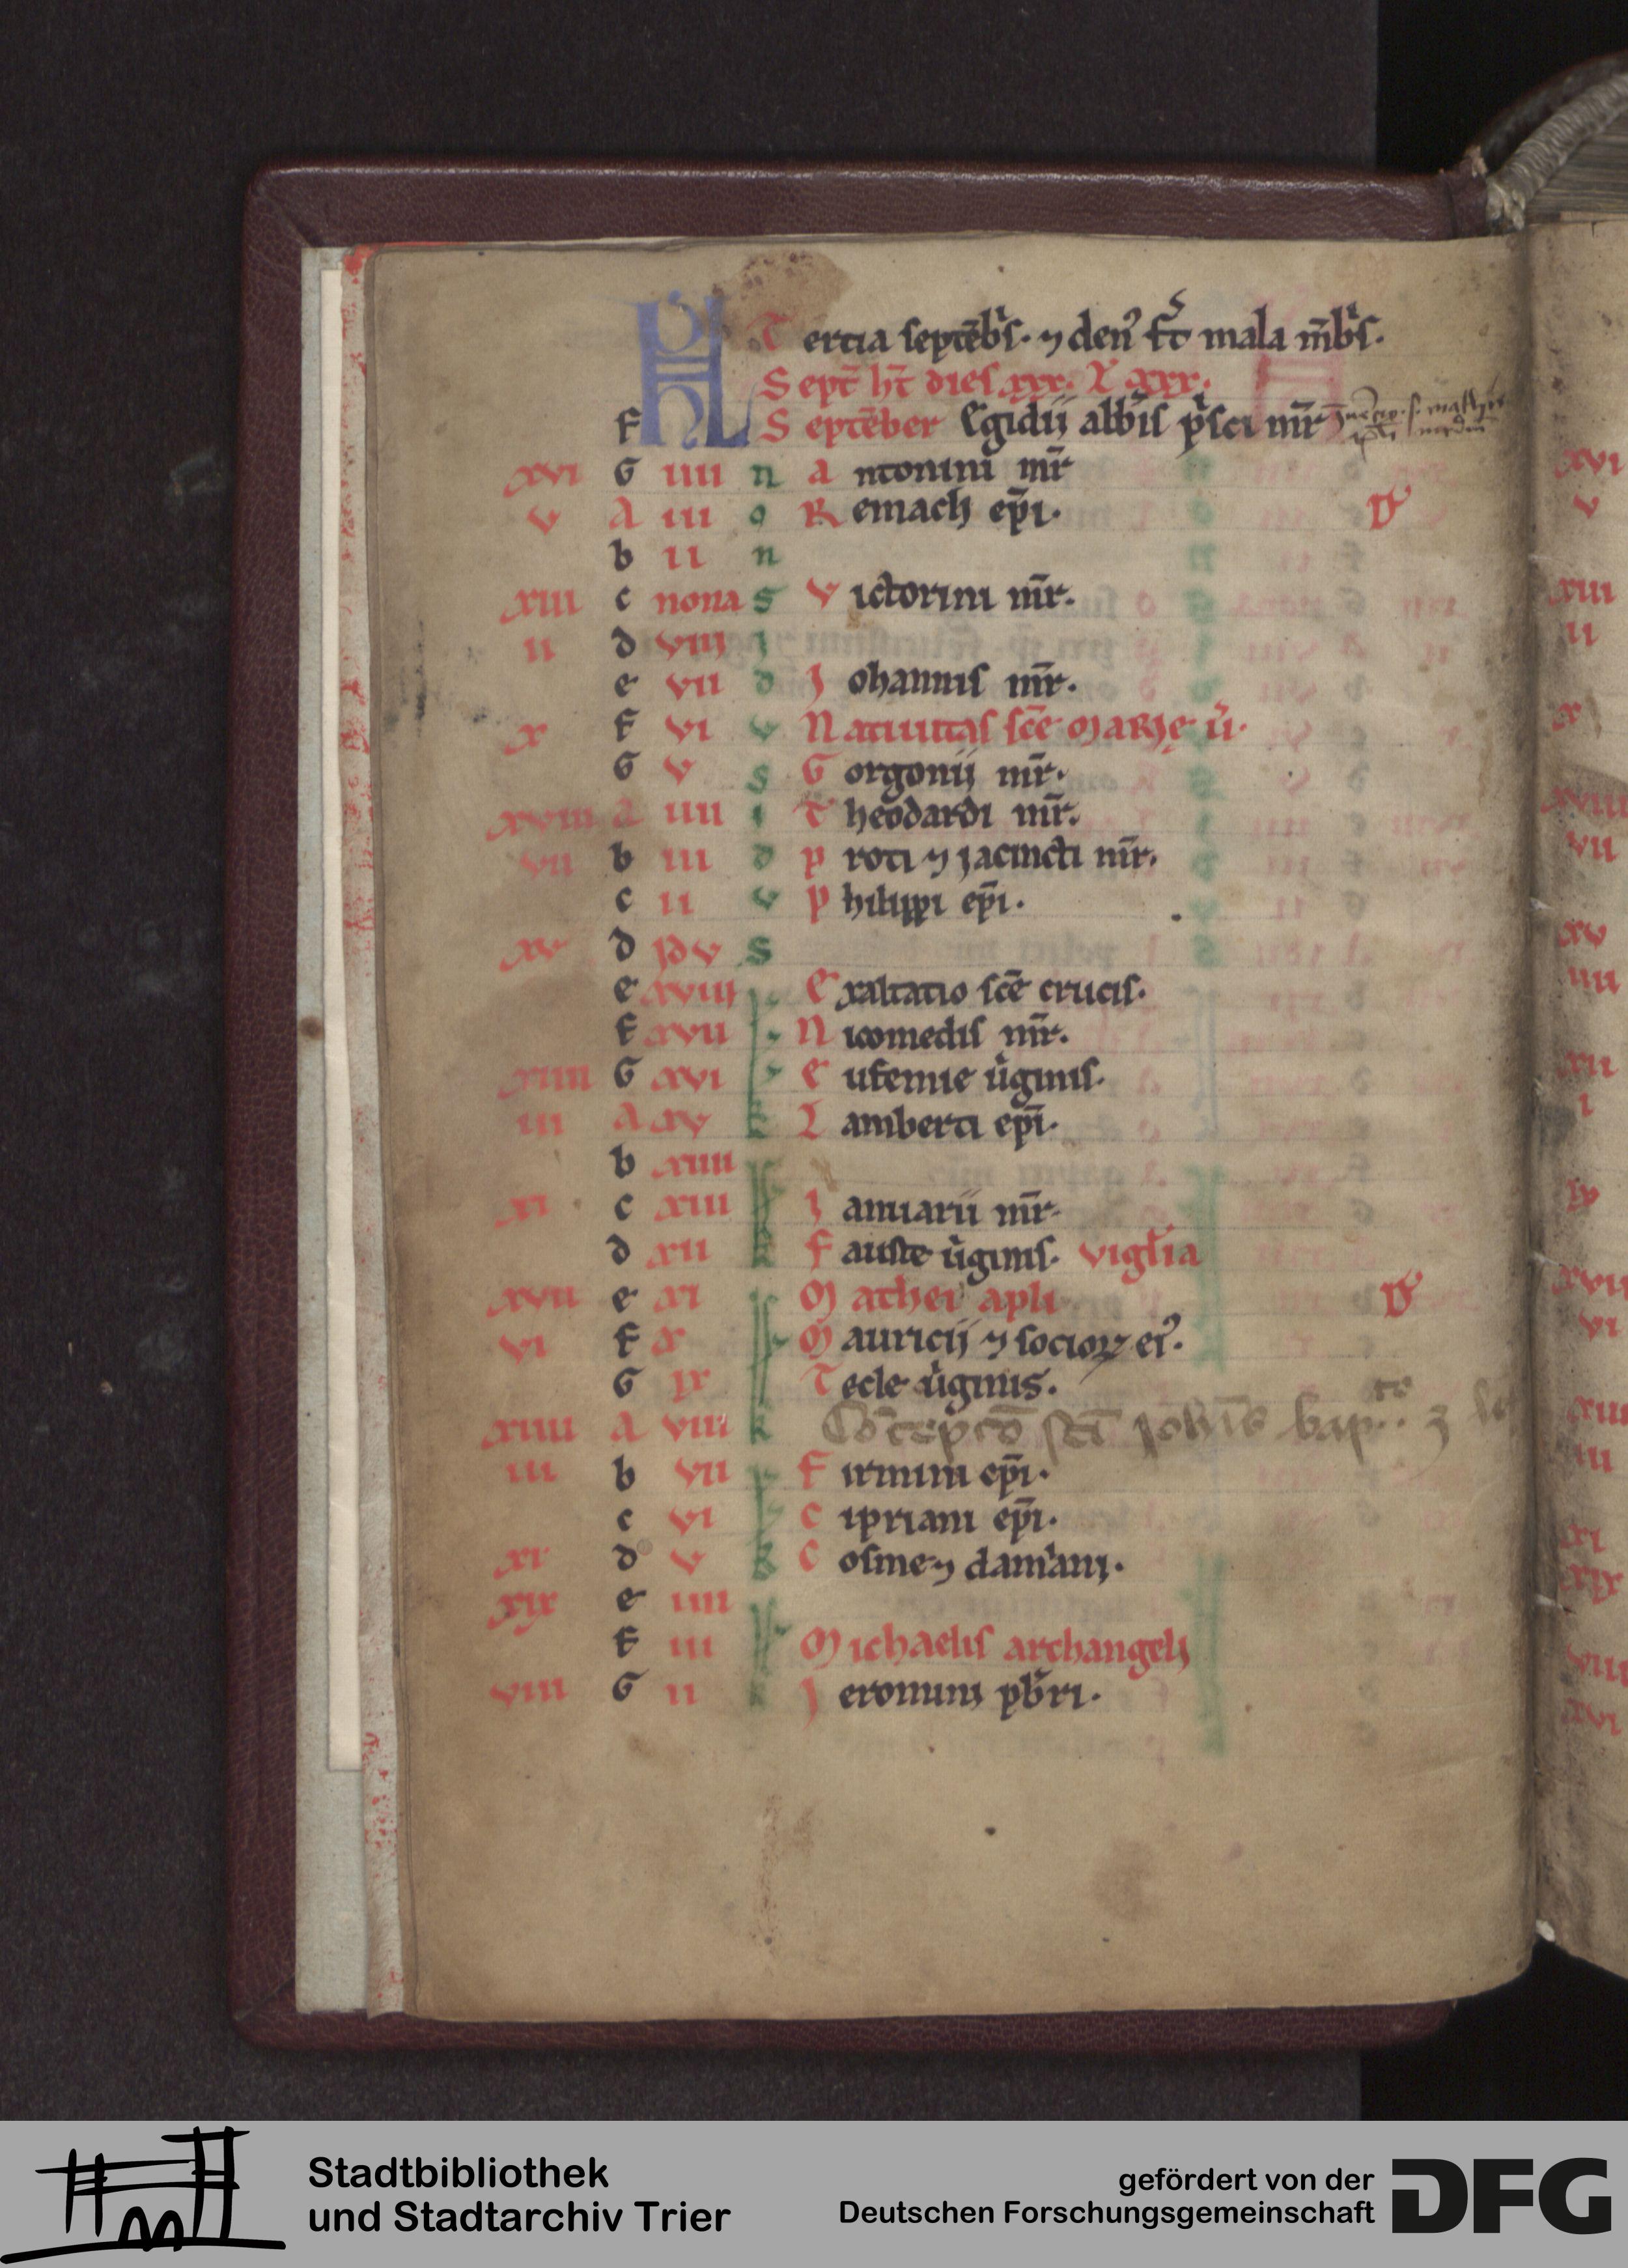 KL Tertia septēbs. ⁊ den⁹ fc̄t mala mēbs.
Sept̄ ht̄ dies xxx. L xxx.
F Septēber Egidii abb̄is p̍sci mr̄
xvi G iiii n antonini mr̄
v A iii o Remacli ep̄i. D
b ii n
xiii c nona s Victorini mr̄.
ii d viii i
e vii d Johannis mr̄.
x F vi v Natiuitas sc̄e Marie v̍.
G v s Gorgonij mr̄.
xviii a iiii i Theodardi mr̄.
vii b iii d proti ⁊ jacincti mr̄.
c ii v philippi ep̄i.
xv d idv s
e xviii Exaltatio sc̄e crucis.
F xvii k Nicomedis mr̄.
xiiii G xvi eufemie v̍ginis.
iii a xv k Lamberti ep̄i.
b xiiii
xi c xiii Januarii mr̄.
d xii k fauste v̍ginis. vigl̍ia
xvii e xi Mathei apl̄i D
vi F x Mauricij ⁊ socioꝝ ei⁹.
G ix Tecle v̍ginis.
xiiii a viii k Cōcepcō sct̄i joh̄is bap.
iii b vii Firmini ep̄i.
c vi Cipriani ep̄i.
xi d v k Cosme ⁊ damiani.
xix e iiii
F iii Michaelis archangeli
viii G ii k Jeronimi pb̄ri.
xvi
v
xiii
ii
x
xviii
vii
xv
iiii
xii
i
ix
xvii
vi
xiiii
iii
xi
xix
viii
xvi
Stadtbibliothek
und Stadtarchiv Trier
gefördert von der
Deutschen Forschungsgemeinschaft
DFG